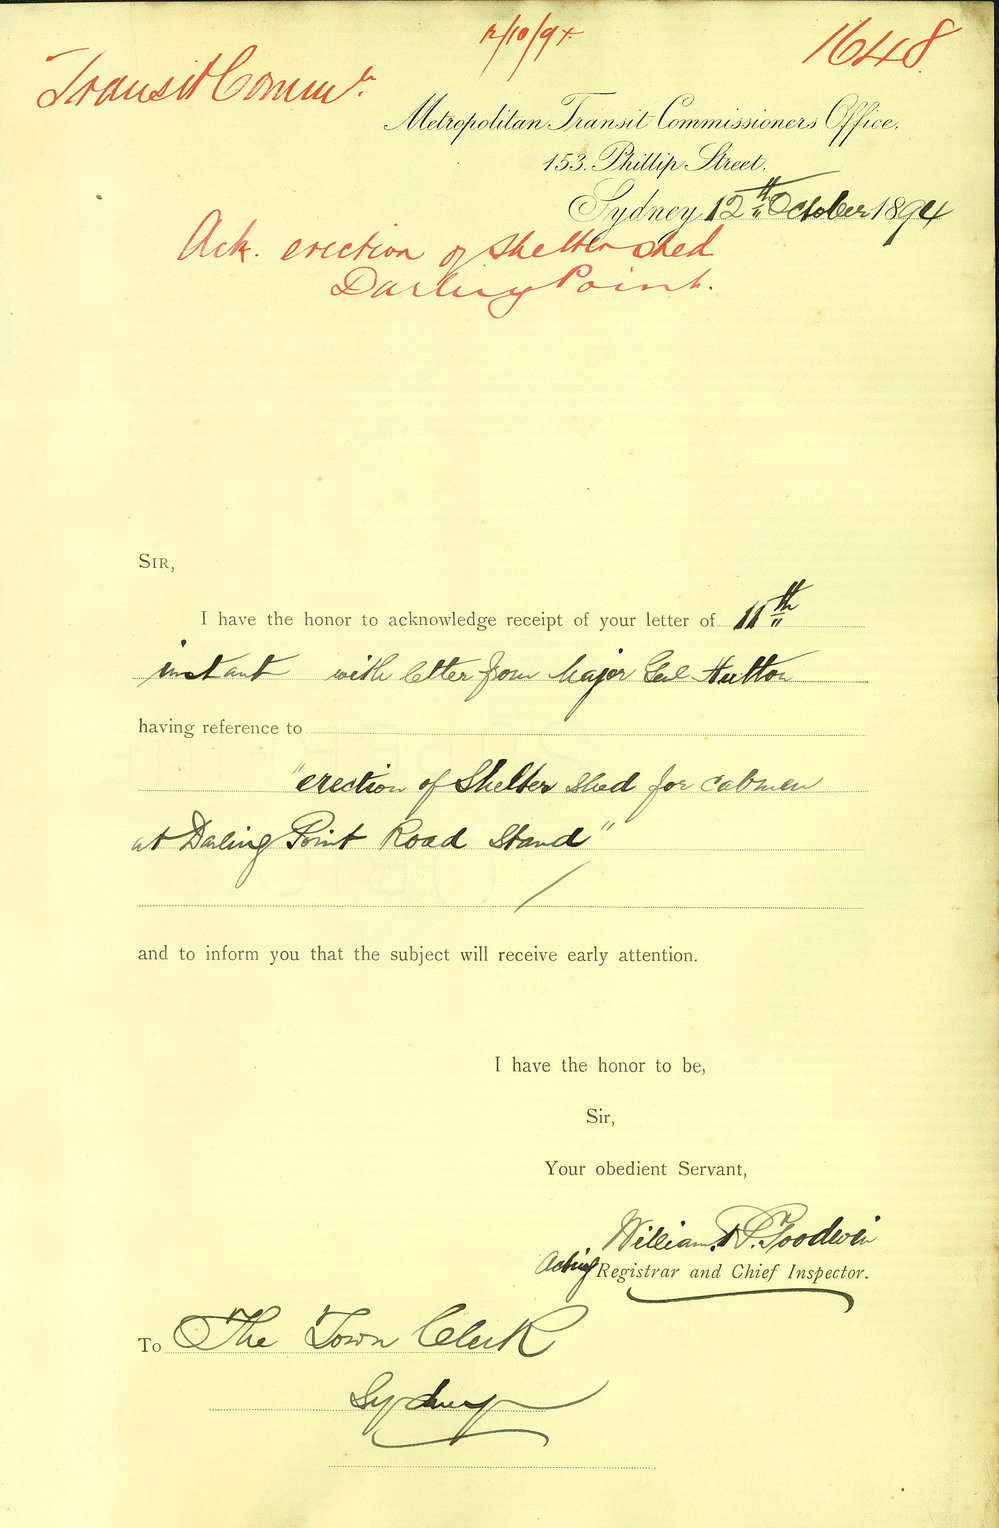 12/10/94
1648
Transit Commrs.
Metropolitan Transit Commissioners Office,
153, Phillip Street.
Sydney 12th October 1894
Ack. erection of Shelter shed
Darling Point.
SIR,
I have the honor to acknowledge receipt of your letter of 11th
instant with letter from Major Genl Hutton
having reference to
"erection of Shelter Shed for cabmen
at Darling Point Road Stand"
and to inform you that the subject will receive early attention.
I have the honor to be,
Sir,
Your obedient Servant,
William P. Goodwin
Acting Registrar and Chief Inspector.
To The Town Clerk
Sydney